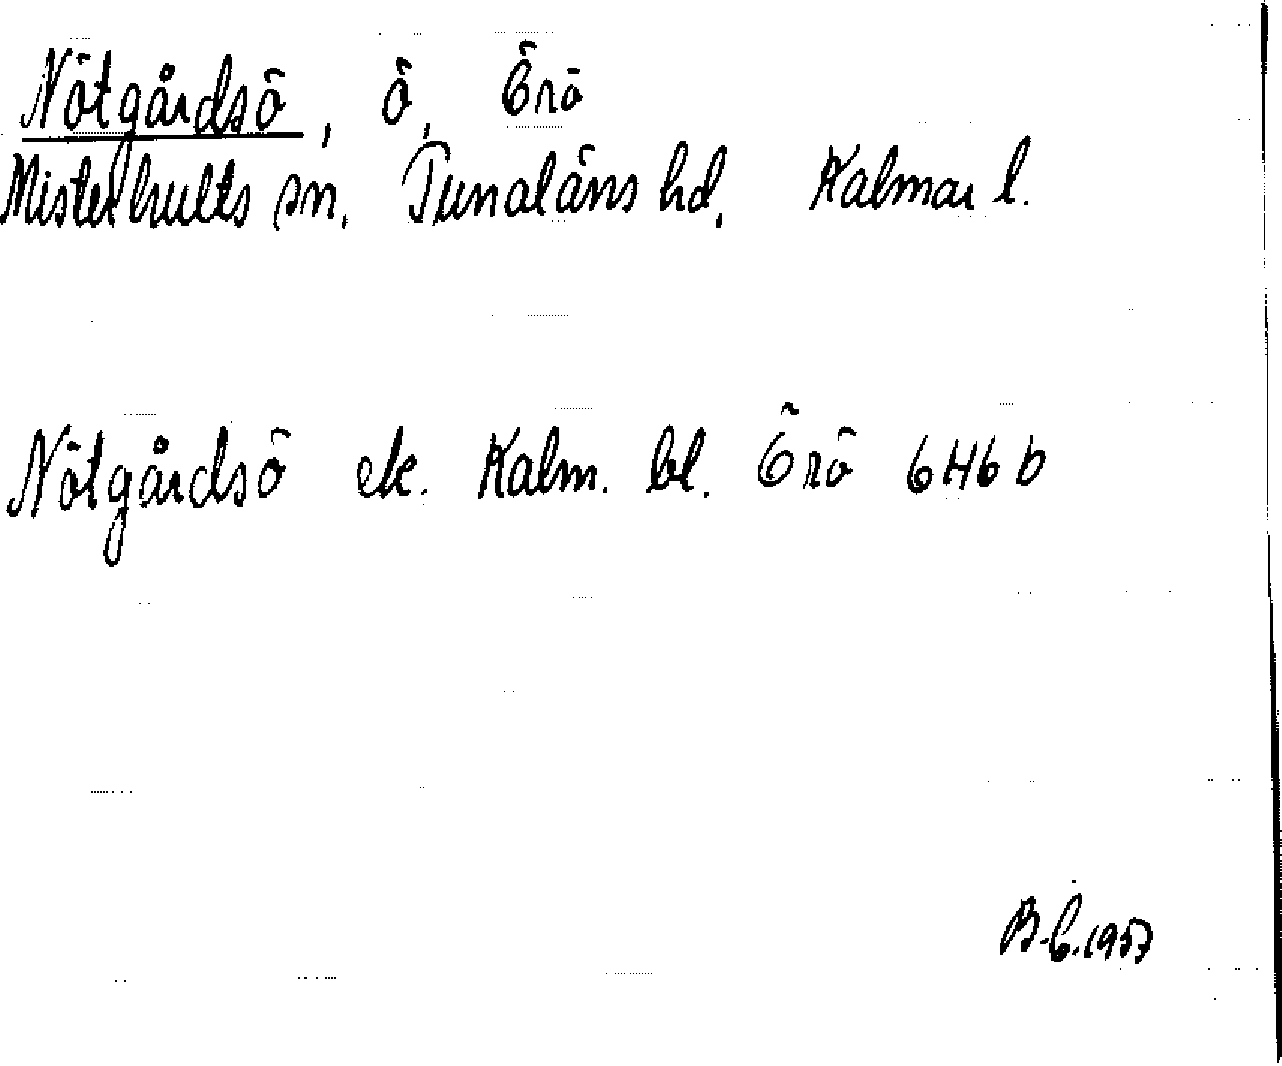 Nötgårdsö, ö, Örö
Misterhults sn. Tunaläns hd. Kalmar l.
Nötgårdsö ek. Kalm. bl. Örö 6H6b
B.G. 1957